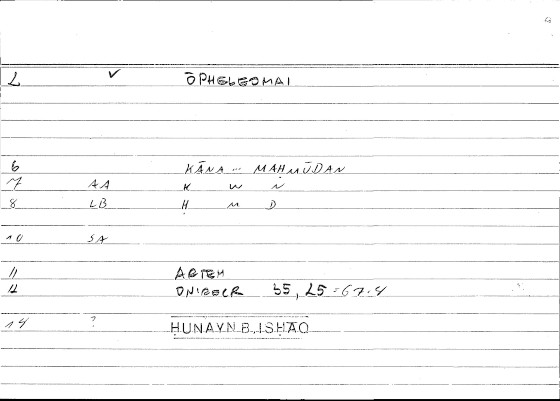 L ✓ ŌPHELEOMAI
6 KĀNA -- MAḤMŪDAN
7 AA K W N
8 LB Ḥ M D
10 SA
11 ARTEM
12 ONIROCR 35, 25 = 67.4
14 ? ḤUNAYN B. ISḤĀQ